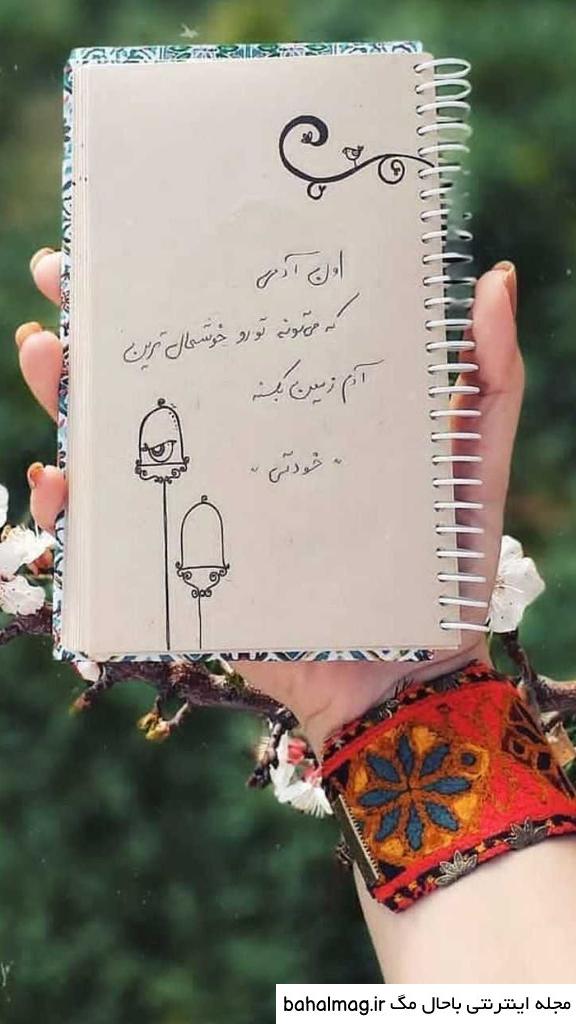 اون آدمی
که می‌تونه تورو خوشحال ترین
آدم زمین بکنه
" خودتی "
مجله اینترنتی باحال مگ bahalmag.ir